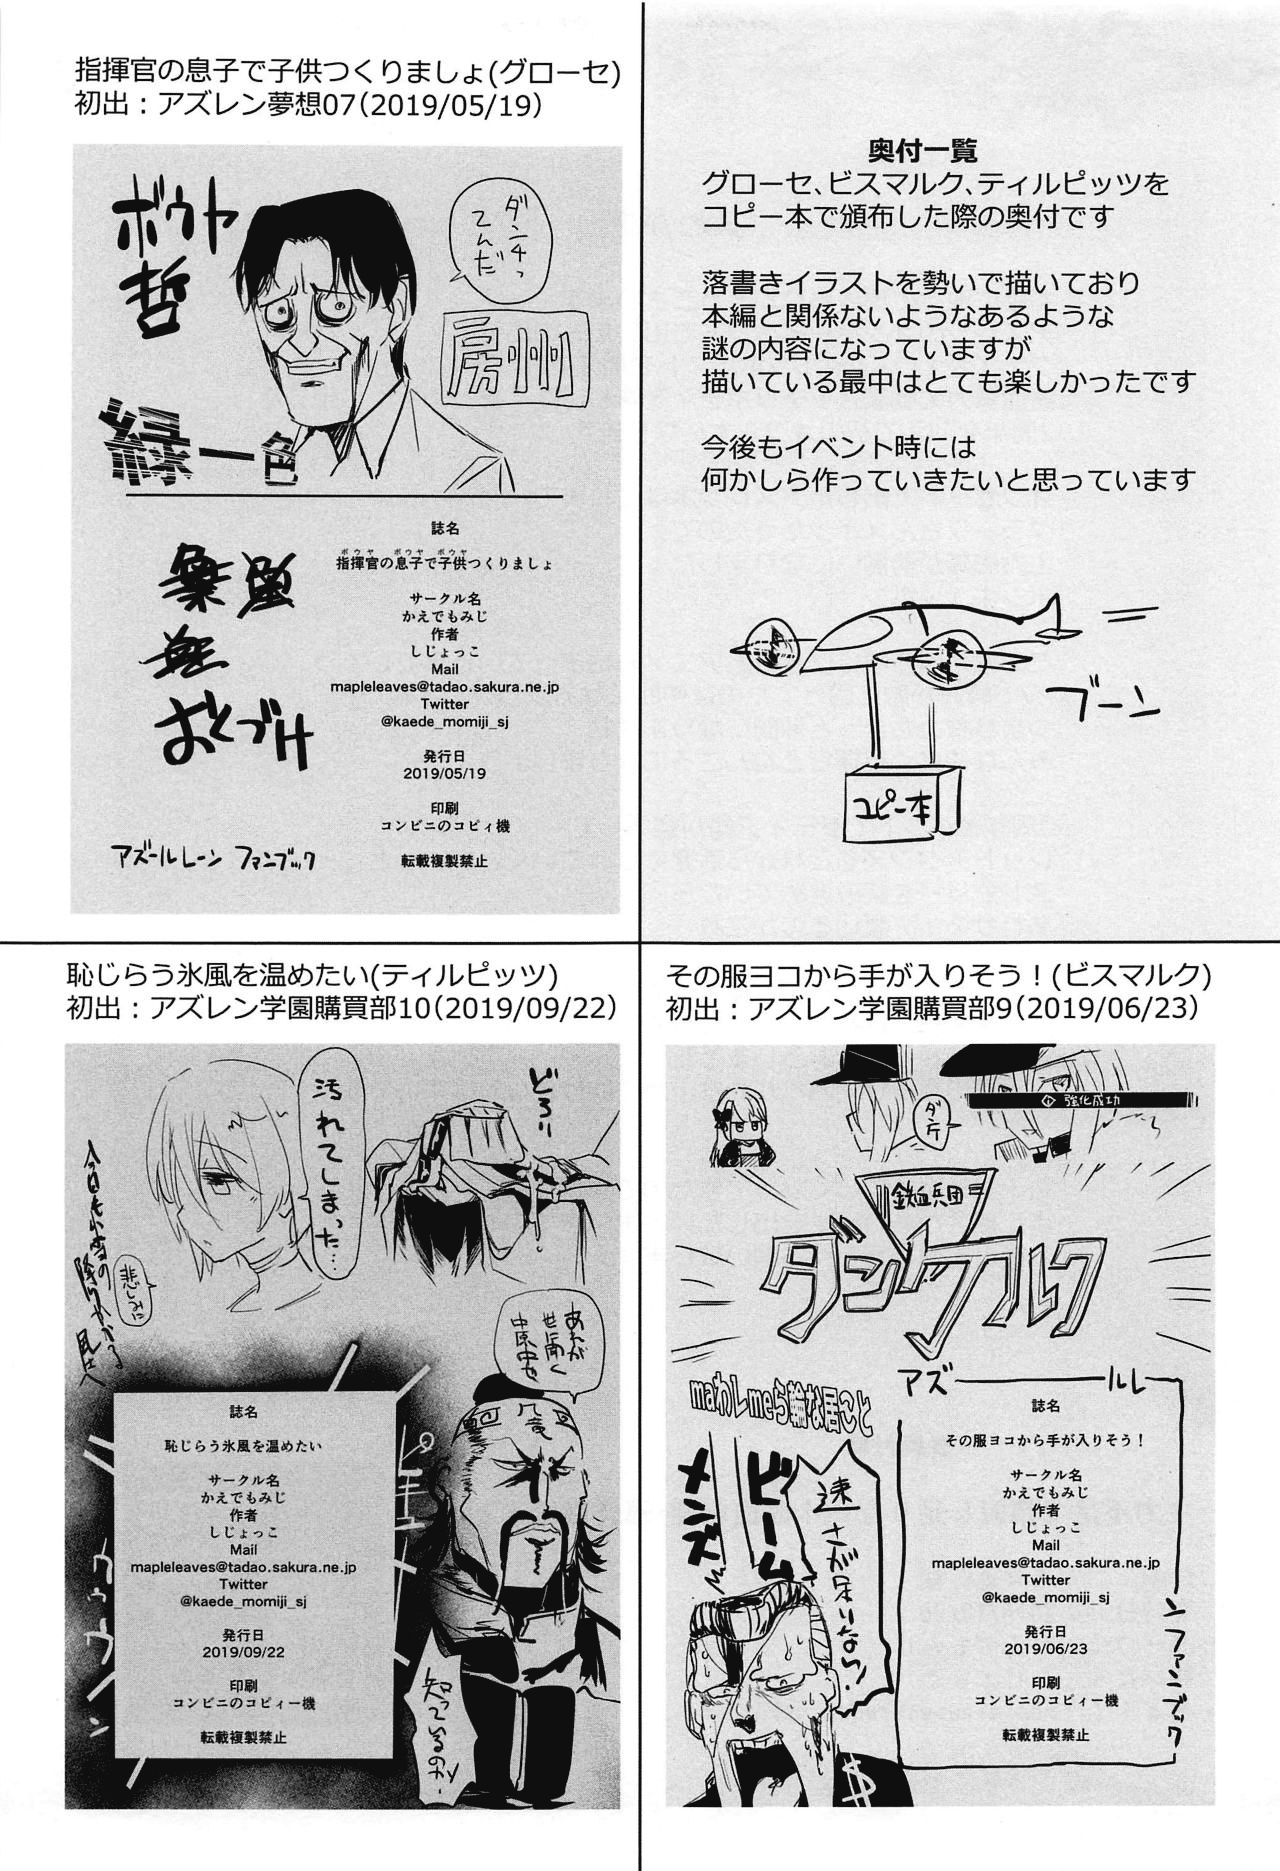 指揮官の息子で子供つくりましょ(グローセ)
初出：アズレン夢想07(2019/05/19)
ボウヤ
哲
ダンチっ
てんだ
房州
緑一色
おくづけ
誌名
ボウヤ ボウヤ ボウヤ
指揮官の息子で子供つくりましょ
サークル名
かえでもみじ
作者
しじょっこ
Mail
mapleleaves@tadao.sakura.ne.jp
Twitter
@kaede_momiji_sj
発行日
2019/05/19
印刷
コンビニのコピィ機
転載複製禁止
アズールレーン ファンブック
奥付一覧
グローセ、ビスマルク、ティルピッツを
コピー本で頒布した際の奥付です
落書きイラストを勢いで描いており
本編と関係ないようなあるような
謎の内容になっていますが
描いている最中はとても楽しかったです
今後もイベント時には
何かしら作っていきたいと思っています
ブーン
コピー本
恥じらう氷風を温めたい(ティルピッツ)
初出：アズレン学園購買部10(2019/09/22)
どろり
汚れてしまった…
悲しみに
今日も小雪の
降りかかる
あれが
世に聞く
中原中也
知っているのか
九竜
ピキュ
誌名
恥じらう氷風を温めたい
サークル名
かえでもみじ
作者
しじょっこ
Mail
mapleleaves@tadao.sakura.ne.jp
Twitter
@kaede_momiji_sj
発行日
2019/09/22
印刷
コンビニのコピィー機
転載複製禁止
その服ヨコから手が入りそう！(ビスマルク)
初出：アズレン学園購買部9(2019/06/23)
強化成功
ダンケ
鉄血兵団
ダンケルク
アズールレーンファンブック
maわしmeら輪な居こと
メンズ
ビーム
速さが足りない！
誌名
その服ヨコから手が入りそう！
サークル名
かえでもみじ
作者
しじょっこ
Mail
mapleleaves@tadao.sakura.ne.jp
Twitter
@kaede_momiji_sj
発行日
2019/06/23
印刷
コンビニのコピィー機
転載複製禁止
$